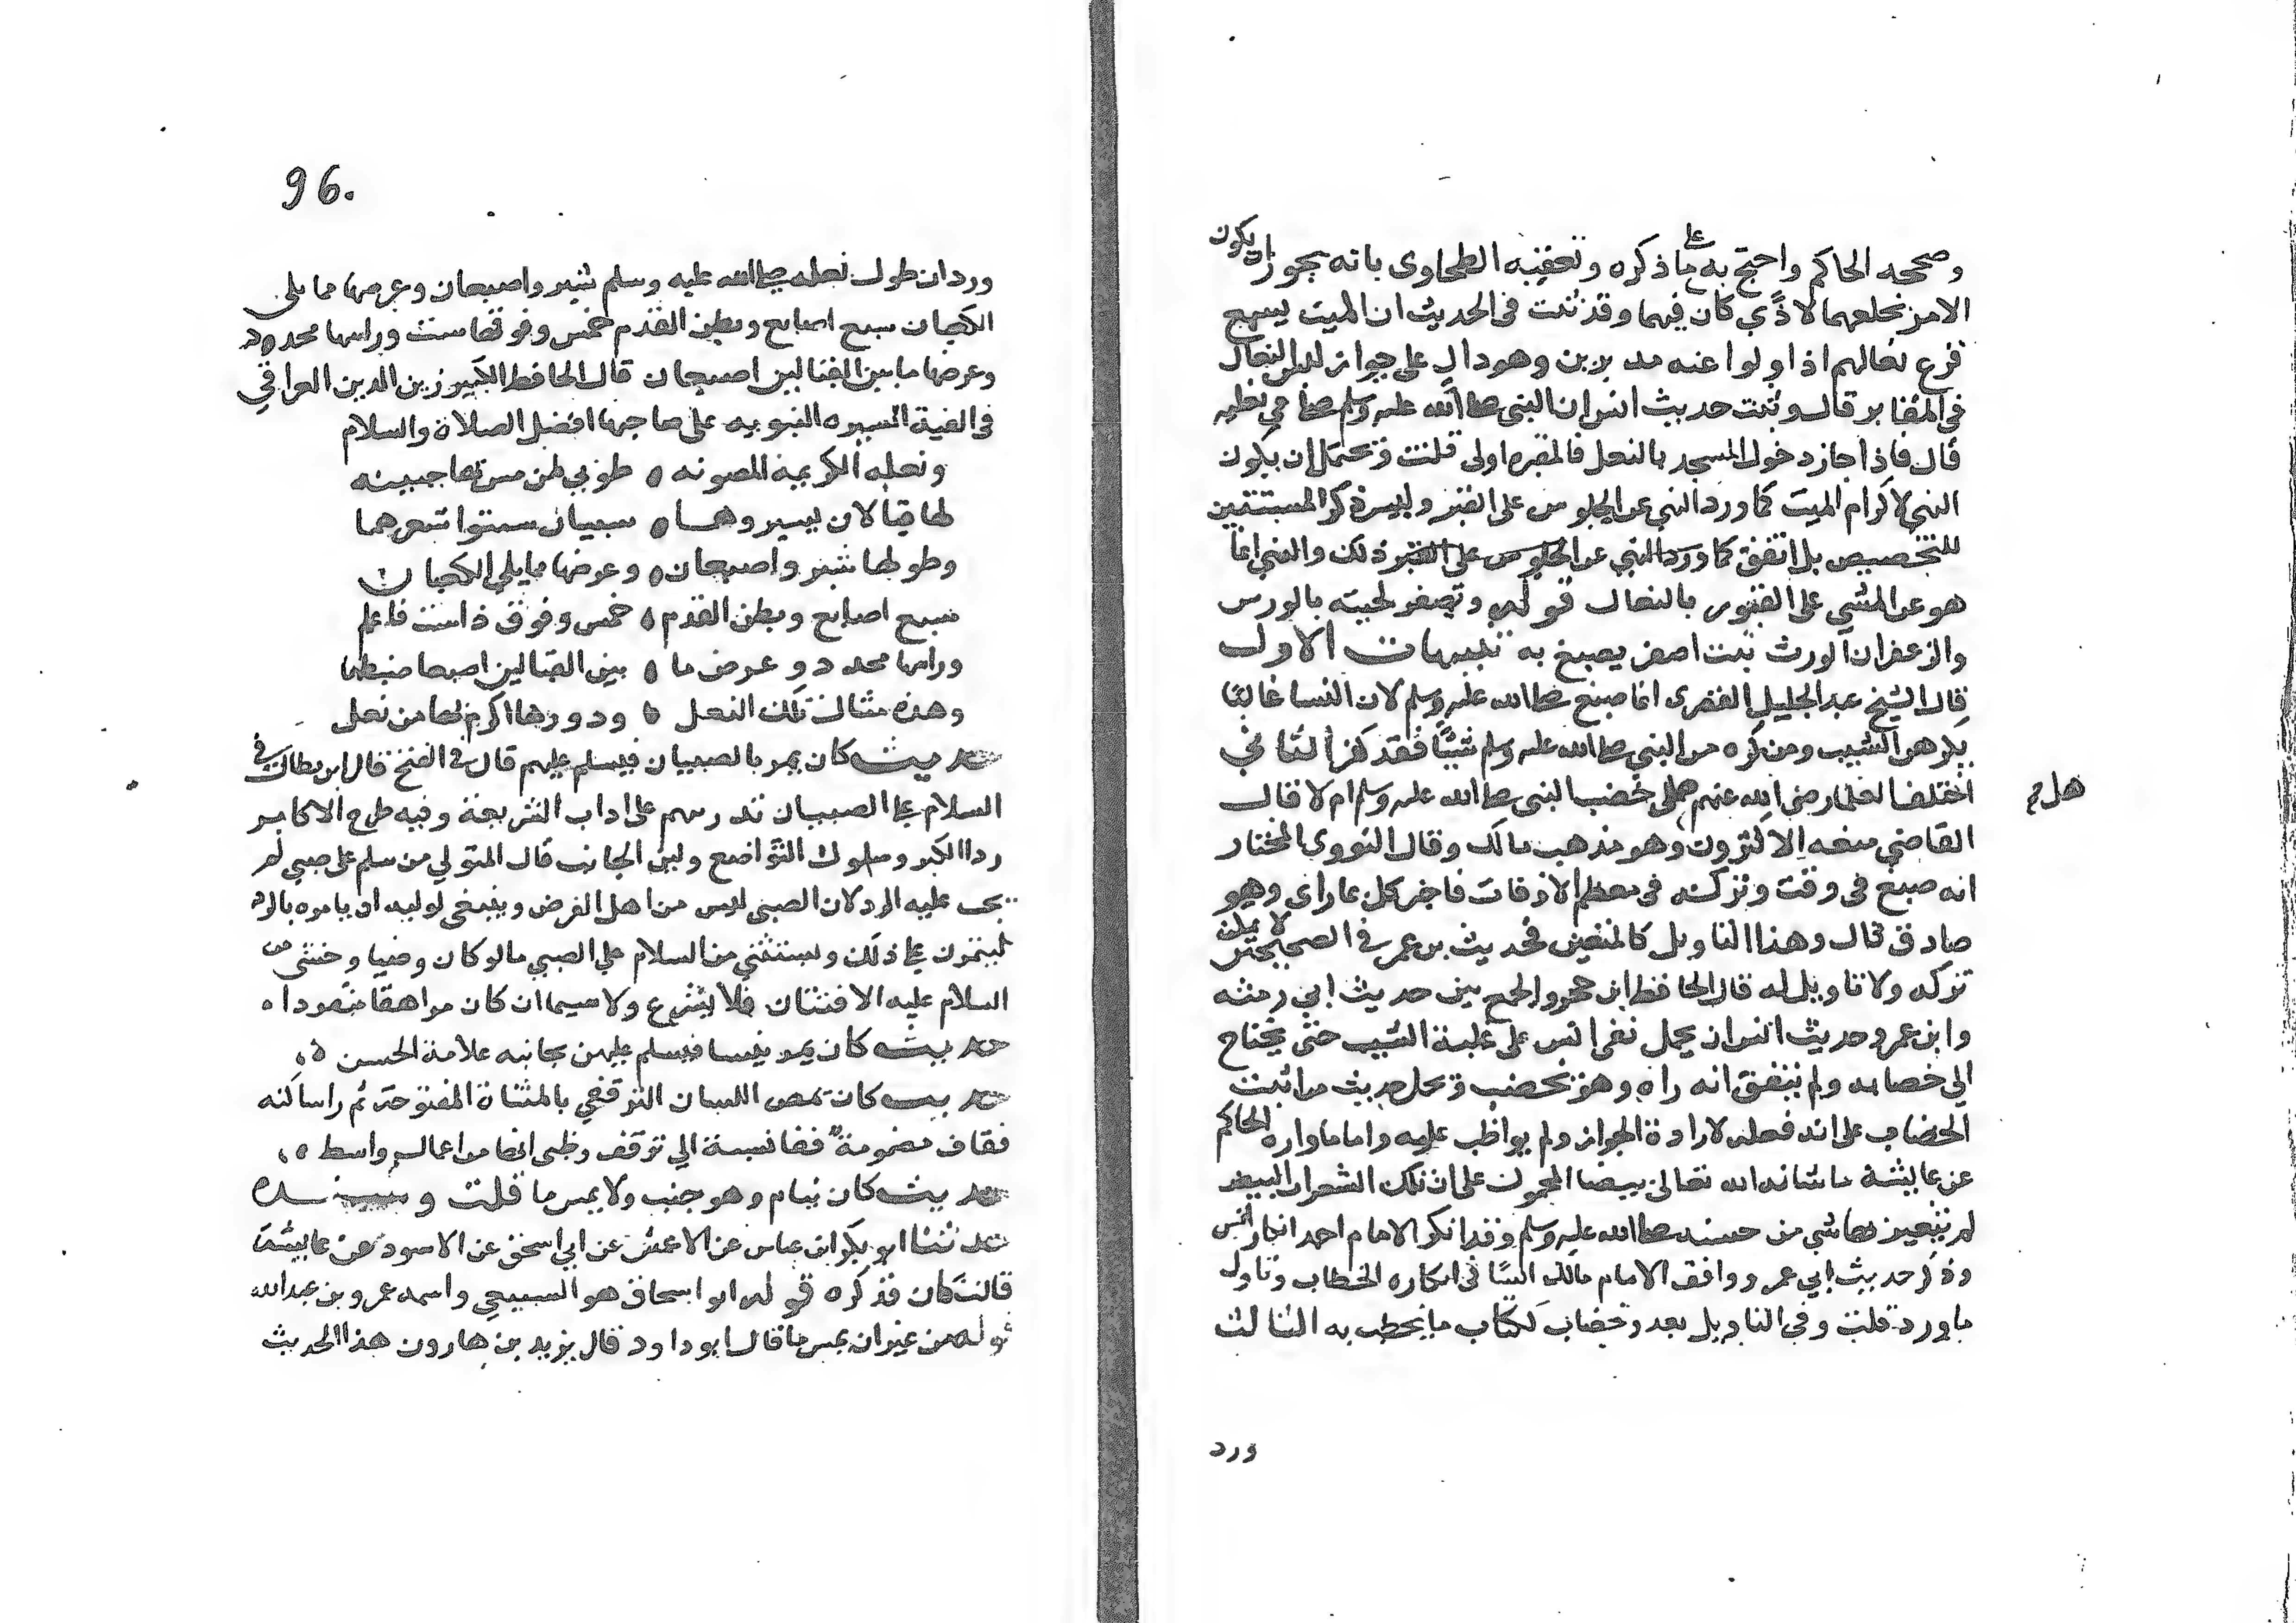 وصححه الحاكم واحتج به على ما ذكره وتعقبه الطحاوى بانه يجوز ان يكون
الامر بخلعهما لاذًى كان فيهما وقد ثبت فى الحديث ان الميت يسمع
قرع نعالهم اذا ولوا عنه مدبرين وهو دال على جواز لبس النعال
فى المقابر قال وثبت حديث انس ان النبى صلى الله عليه وسلم صلى فى نعليه
قال فاذا جاز دخول المسجد بالنعل فالمقبره اولى قلت وتحتمل ان يكون
النهي لاكرام الميت كما ورد النهي عن الجلوس على القبر وليس ذكر السبتيتين
للتخصيص بل اتفق كما ورد النهي عن الجلوس على القبر ذلك والنهي انما
هو عن المشي على القبور بالنعال قوله وتصفر لحيته بالورس
والزعفران الورث نبت اصفر يصبغ به تنبيهات الاول
قال الشيخ عبد الجليل القصرى انما صبغ صلى الله عليه وسلم لان النسا غالبًا
يكرهن الشيب ومن كره من النبي صلى الله عليه وسلم شيئًا فقد كفر الثانى
اختلف العلما رضى الله عنهم هل خضب النبى صلى الله عليه وسلم ام لا قال
هل
القاضي منعه الاكثرون وهو مذهب مالك وقال النووى المختار
انه صبغ فى وقت وتركه فى معظم الاوقات فاخبر كل بما راى وهو
صادق قال وهذا التاويل كالمتعين فحديث بن عمر فى الصحيحين لا يمكن
تركه ولا تاويل له قال الحافظ ابن حجر والجمع بين حديث ابي رمثه
وابن عمر وحديث انس ان يحمل نفى انس على غلبة الشيب حتى يحتاج
الى خضابه ولم يتفق انه راه وهو يخضب وتحمل حديث من اثبت
الخضاب على انه فعله لارادة الجواز ولم يواظب عليه واما ما واره الحاكم
عن عايشة ما شانه الله تعالى ببيضا المحمول على ان تلك الشعرات البيض
لم يتغير بها شي من حسنه صلى الله عليه وسلم وقد انكر الامام احمد انكار انس
وذكر حديث ابي عمر ووافق الامام مالك انسًا فى انكاره الخطاب وتاول
ما ورد قلت وفى التاويل بعد وخضاب لكتاب ما يخطب به الثالث
ورد
96.
ورد ان طول نعله صلى الله عليه وسلم شبر واصبعان وعرضها مما يلى
الكعبان سبع اصابع وبطن القدم خمس وفوقها ست وراسها محدود
وعرضها ما بين القبالين اصبعان قال الحافظ الكبير زين الدين العراقي
فى الفية السيره النبويه على صاحبها افضل الصلاة والسلام
ونعله الكريمة المصونه ه طوبي لمن مس بها جبينه
لها قبالان بسير وهما ه سبتيان سبتوا شعرهما
وطولها شبر واصبعان ه وعرضها مما يلي الكعبان
سبع اصابع وبطن القدم ه خمس وفوق ذا ست فاعلم
وراسها محدد وعرض ما ه بين القبالين اصبعا ضبطها
وهذه مثال تلك النعل ه ودورها اكرم بها من نعل
حديث كان يمر بالصبيان فيسلم عليهم قال فى الفتح قال ابن بطال فى
السلام على الصبيان تدريسهم على اداب الشريعة وفيه طرح الاكابر
ردا الكبر وسلوك التواضع ولين الجانب قال المتولي من سلم على صبي لم
يجب عليه الرد لان الصبي ليس من اهل الفرض وينبغى لوليه ان يامره بالرد
ليتمرن على ذلك ويستثني من السلام على الصبي ما لو كان وضيا وخشى من
السلام عليه الافتتان فلا يشرع ولا سيما ان كان مراهقا منفردا ه
حديث كان يمر بنسا فيسلم عليهن بجانبه علامة الحسن ه
حديث كان يمص اللسان الترقفي بالمثناة المفتوحة ثم راساكنه
فقاف مضمومة ففا نسبة الي ترقف وظنى انها من اعمال واسط ه
حديث كان ينام وهو جنب ولا يمس ما قلت وسنده
حدثنا ابو بكر ابن عباس عن الاعمش عن ابي اسحق عن الاسود عن عايشة
قالت كان فذكره قوله ابو اسحاق هو السبيعي واسمه عمرو بن عبد الله
قوله من غير ان يمس ما قال ابو داود قال يزيد بن هارون هذا الحديث